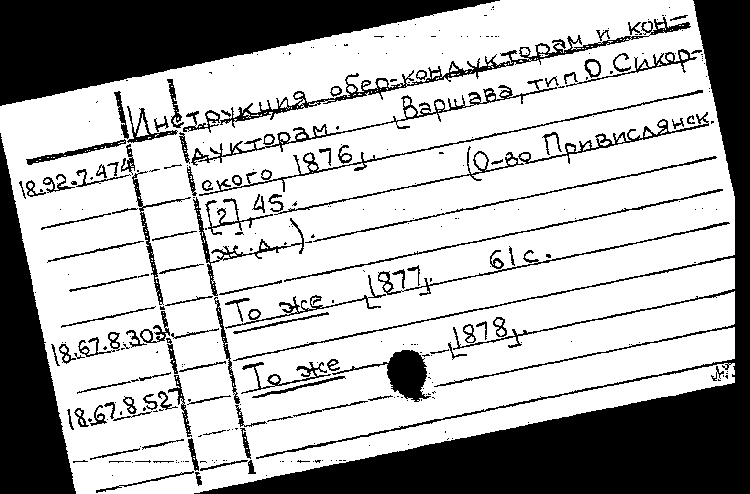 Инструкция обер-кондукторам и кон-
дукторам. [Варшава, тип. О. Сикор-
18.92.7.474 ского, 1876].
[2], 45. (О-во Привислянск.
ж. д.).
18.67.8.303. То же. [1877]. 61 с.
18.67.8.527. То же. [1878].